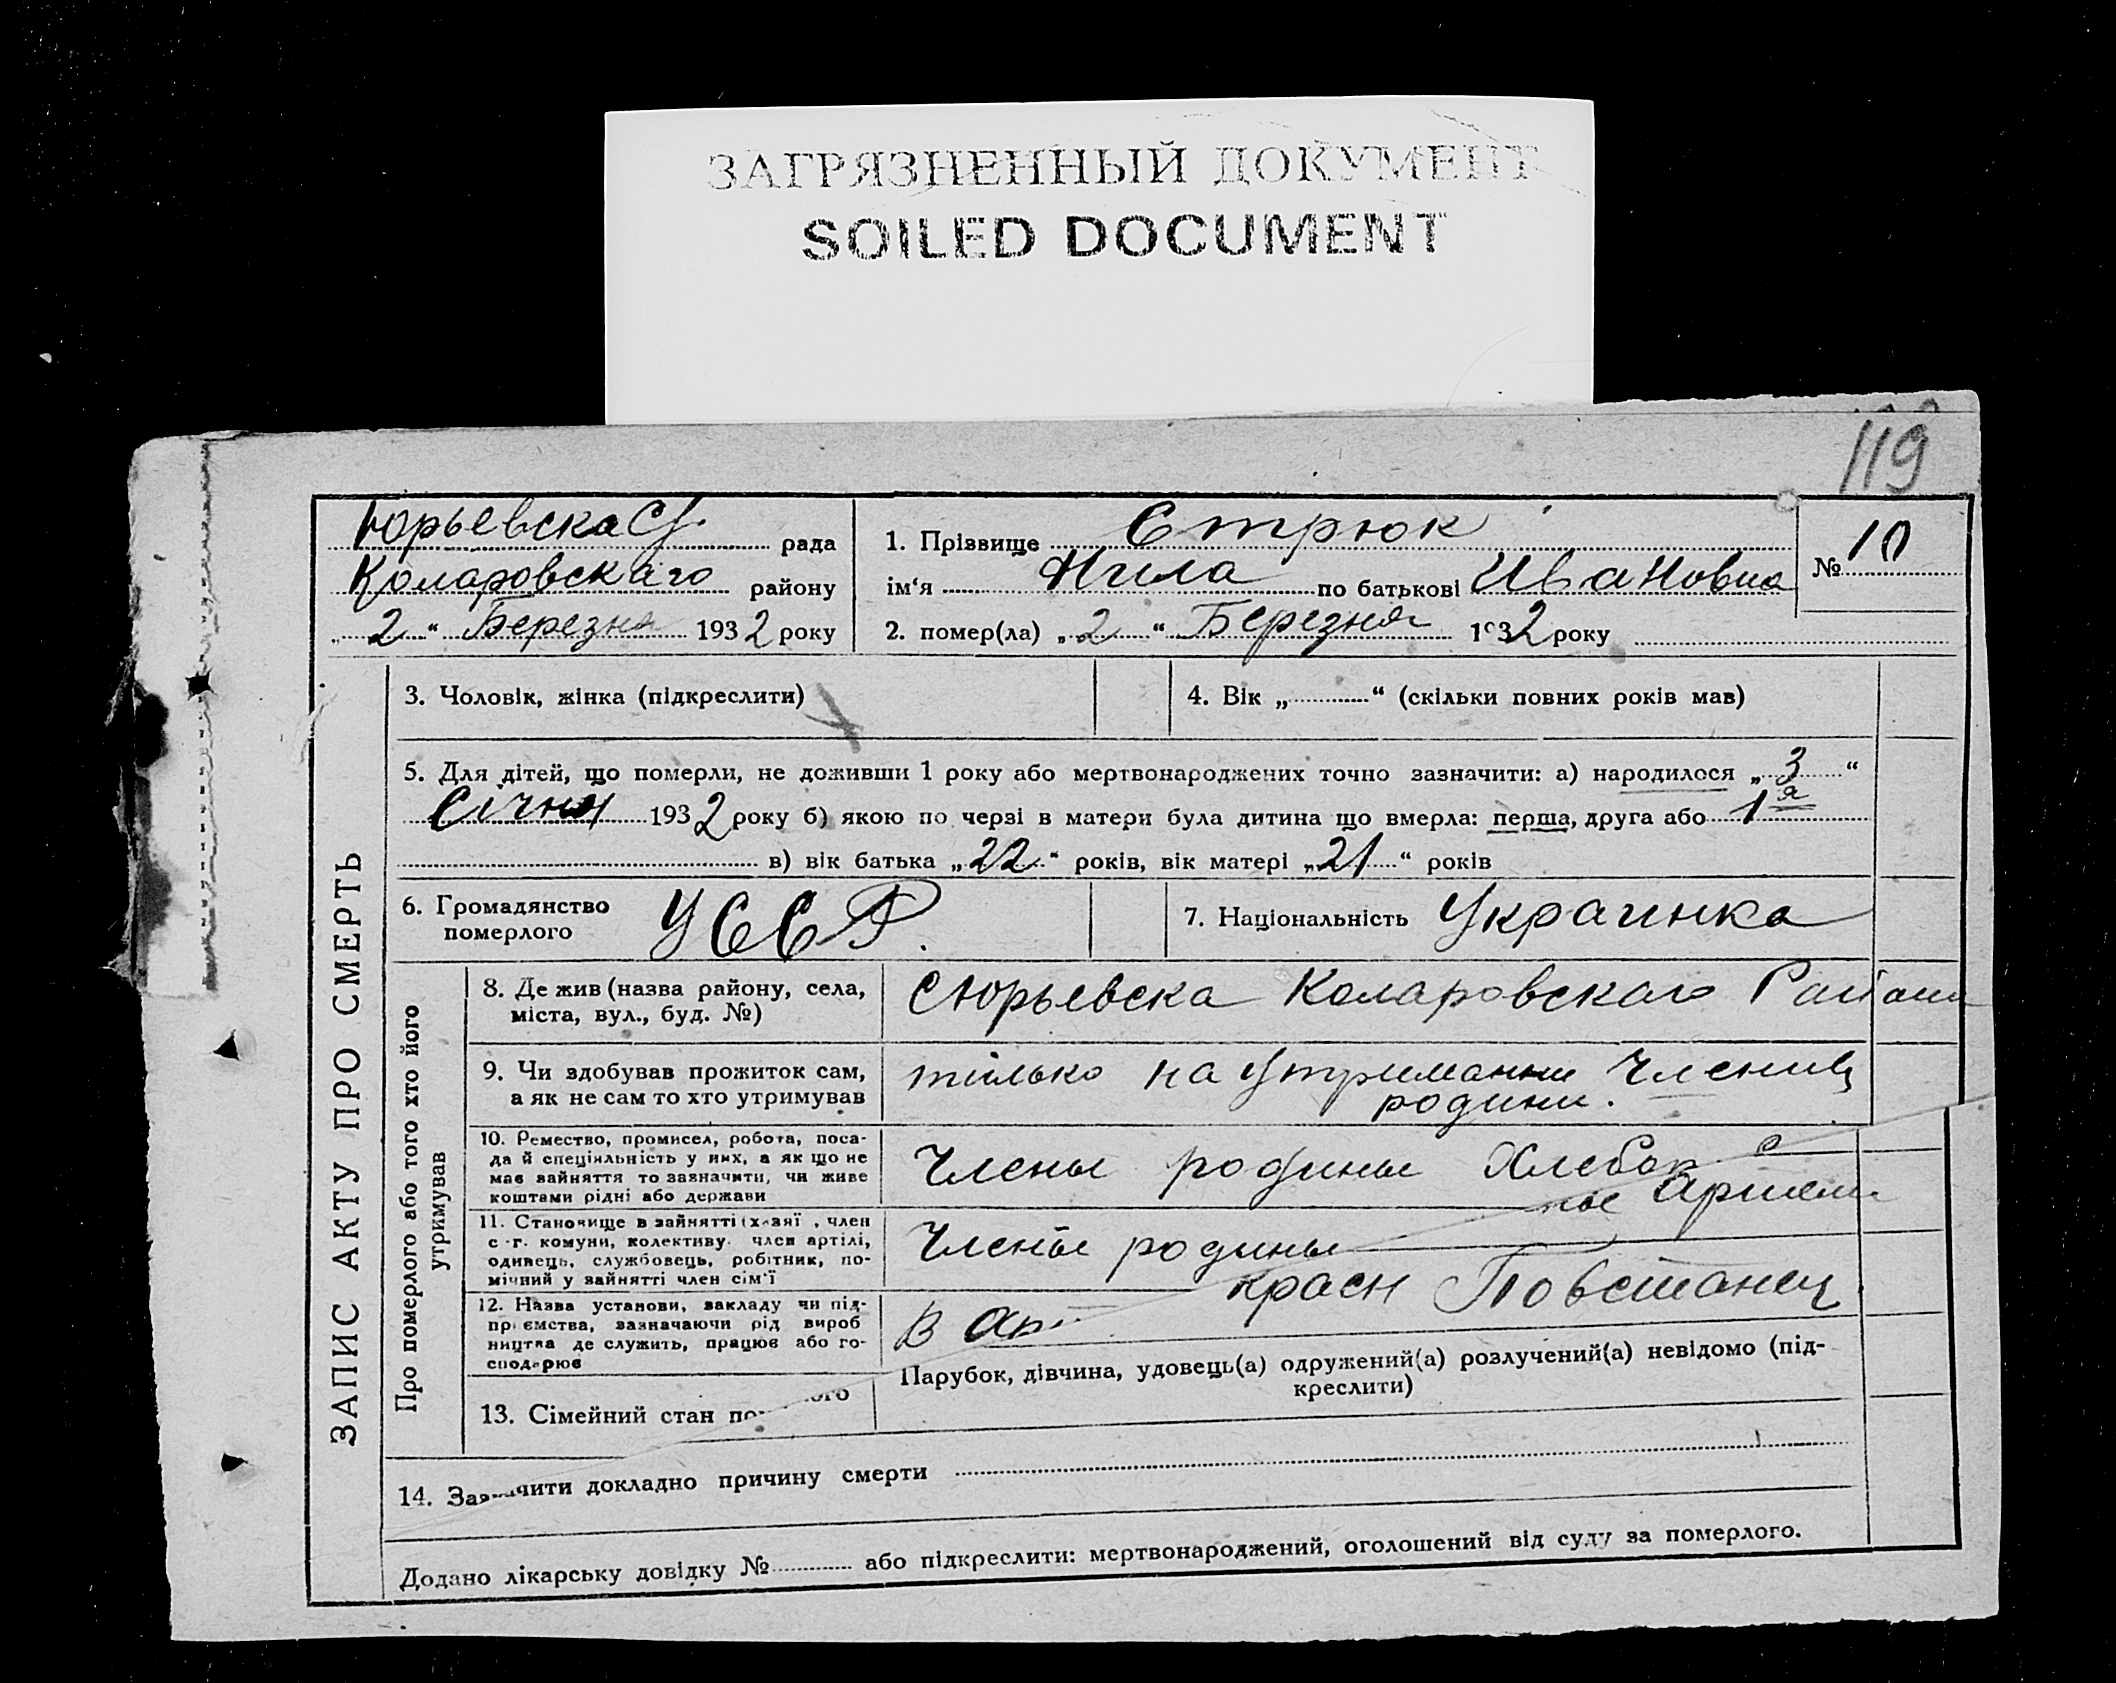 ЗАГРЯЗНЕННЫЙ ДОКУМЕНТ
SOILED DOCUMENT
119
Юрьевска рада
Коларовскаго району
„ 2 “ Березня 1932 року
1. Прізвище Стрюк
ім‘я Нила по батькові Ивановна
2. помер(ла) „ 2 “ Березня 1932 року
№ 10
ЗАПИС АКТУ ПРО СМЕРТЬ
3. Чоловік, жінка (підкреслити)
4. Вік „ “ (скільки повних років мав)
5. Для дітей, що померли, не доживши 1 року або мертвонароджених точно зазначити: а) народилося „ 3 “
Січня 1932 року б) якою по черзі в матери була дитина що вмерла: перша, друга або 1 я
в) вік батька „ 22 “ років, вік матері „ 21 “ років
6. Громадянство
померлого
УССР.
7. Національність Украинка
Про померлого або того хто його
утримував
8. Де жив (назва району, села,
міста, вул., буд. №)
с Юрьевска Коларовскаго Района
9. Чи здобував прожиток сам,
а як не сам то хто утримував
тілько на утриманни Членив
родини.
10. Ремество, промисел, робота, поса-
да й спеціяльність у них, а як що не
має зайняття то зазначити, чи живе
коштами рідні або держави
Члены родины
Артели
11. Становище в зайнятті (х зяї , член
с.-г. комуни, колективу, член артілі,
одинець, службовець, робітник, по-
мічний у зайнятті член сім'ї
Члены родины
12. Назва установи, закладу чи під-
приємства, зазначаючи рід вироб
ництва де служить, працює або го-
сподарює
красн Повстанец
в Ар
13. Сімейний стан
Парубок, дівчина, удовець(а) одружений(а) розлучений(а) невідомо (під-
креслити)
14. Зазначити докладно причину смерти
Додано лікарську довідку № або підкреслити: мертвонароджений, оголошений від суду за померлого.